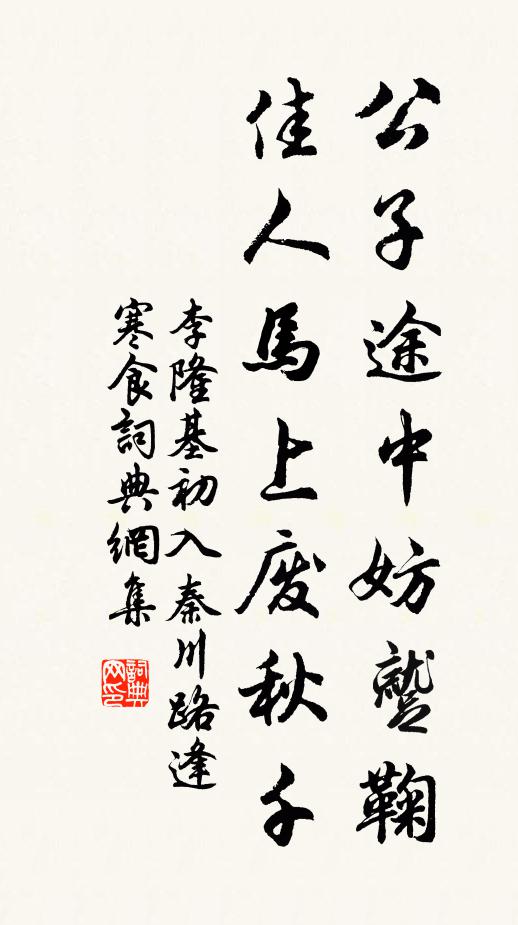 公子途中妨蹵鞠
佳人馬上废秋千
李隆基初入秦川路逢
寒食詞典網集
詞典网印